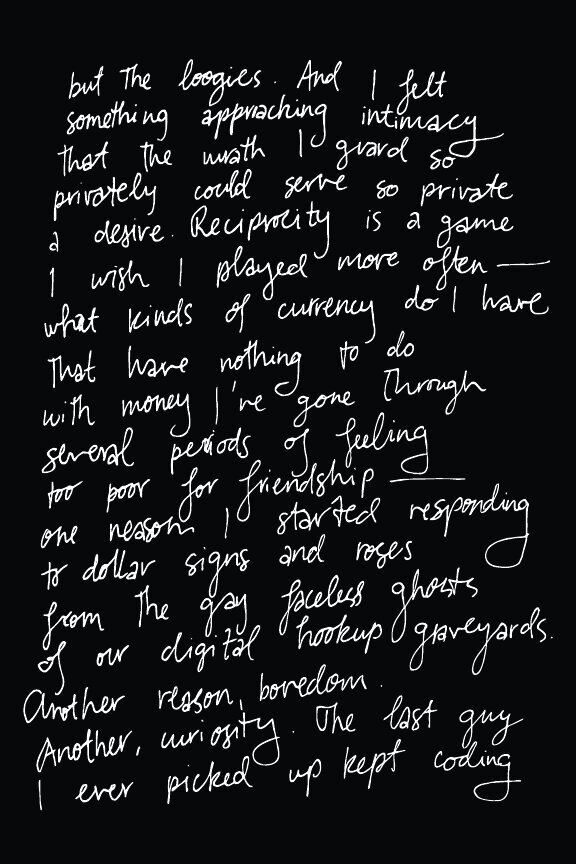 but the loogies. And I felt
something approaching intimacy
that the wrath I guard so
privately could serve so private
a desire. Reciprocity is a game
I wish I played more often —
what kinds of currency do I have
that have nothing to do
with money I've gone through
several periods of feeling
too poor for friendship —
one reason I started responding
to dollar signs and roses
from the gay faceless ghosts
of our digital hookup graveyards.
Another reason, boredom.
Another, curiosity. The last guy
I ever picked up kept coding